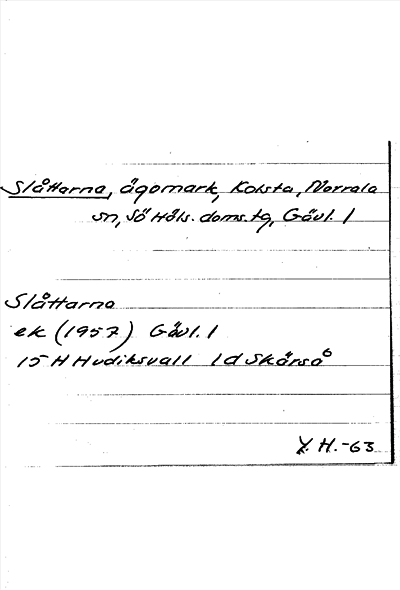 Slåttarna, ägomark, Kolsta, Norrala
sn, Sö Häls. doms. tg, Gävl. l
Slåttarna
ek (1957) Gävl. l
15 H Hudiksvall 1 d Skärså
Y. H. -63